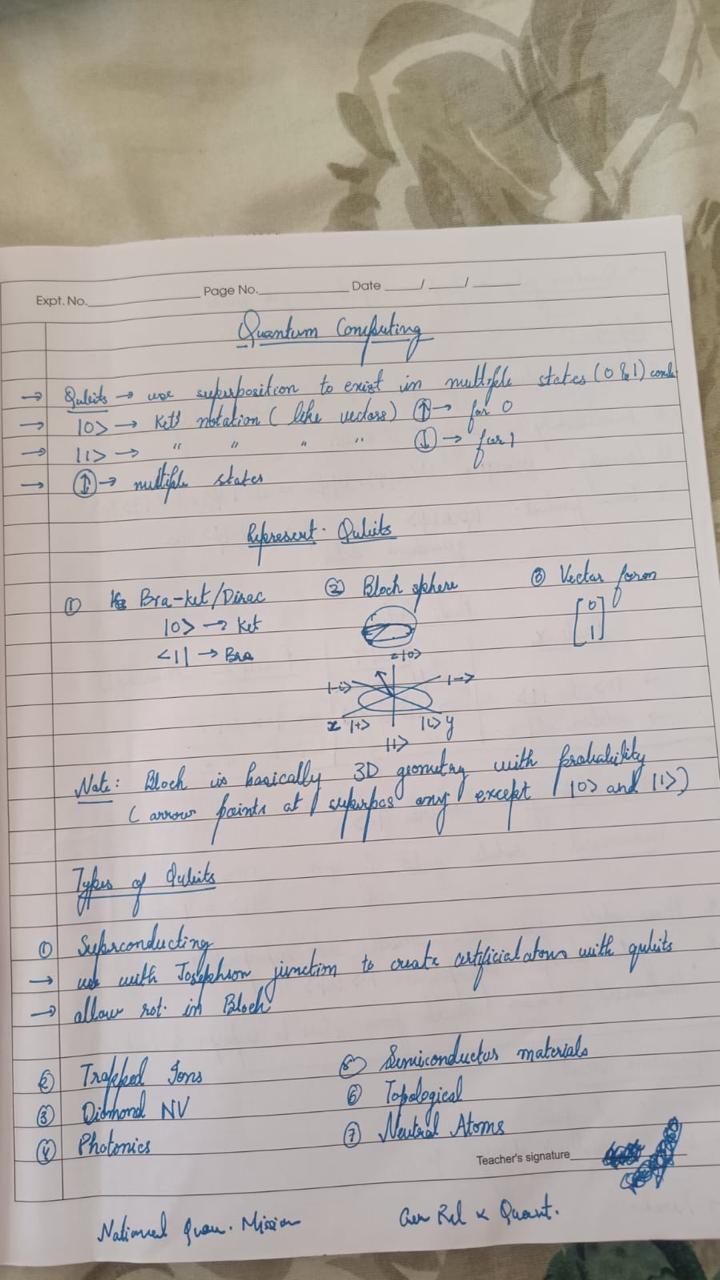 Expt. No. Page No. Date / /
Quantum Computing
→ Qubits → use superposition to exist in multiple states (0 & 1)
→ |0> → Ket notation (like vectors) ↑ → for 0
→ |1> → " " " " ↓ → for 1
→ ↕ → multiple states
Represent. Qubits
① Bra-ket/Dirac ② Bloch sphere ③ Vector form
|0> → Ket [0
<1| → Bra 1]
|0>
|-i> |->
x |+> |i> y
|1>
Note: Bloch is basically 3D geometry with probability
(arrow points at superpos any except |0> and |1>)
Types of Qubits
① Superconducting
→ use with Josephson junction to create artificial atoms with qubits
→ allow rot. in Bloch
② Trapped Ions ⑤ Semiconductor materials
③ Diamond NV ⑥ Topological
④ Photonics ⑦ Neutral Atoms
Teacher's signature
National Quan. Mission Gen Rel x Quant.